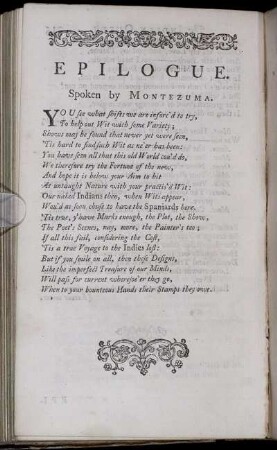 EPILOGUE.
Spoken by MONTEZUMA.
YOU see what shifts we are inforc'd to try,
To help out Wit with some Variety;
Shows may be found that never yet were seen,
'Tis hard to find such Wit as ne'er has been:
You have seen all that this old World cou'd do,
We therefore try the Fortune of the new,
And hope it is below your Aim to hit
At untaught Nature with your practis'd Wit:
Our naked Indians then, when Wits appear,
Wou'd as soon chuse to have the Spaniards here.
'Tis true, y'have Marks enough, the Plot, the Show,
The Poet's Scenes, nay, more, the Painter's too;
If all this fail, considering the Cost,
'Tis a true Voyage to the Indies lost:
But if you smile on all, then these Designs,
Like the imperfect Treasure of our Minds,
Will pass for current wheresoe'er they go,
When to your bounteous Hands their Stamps they owe.